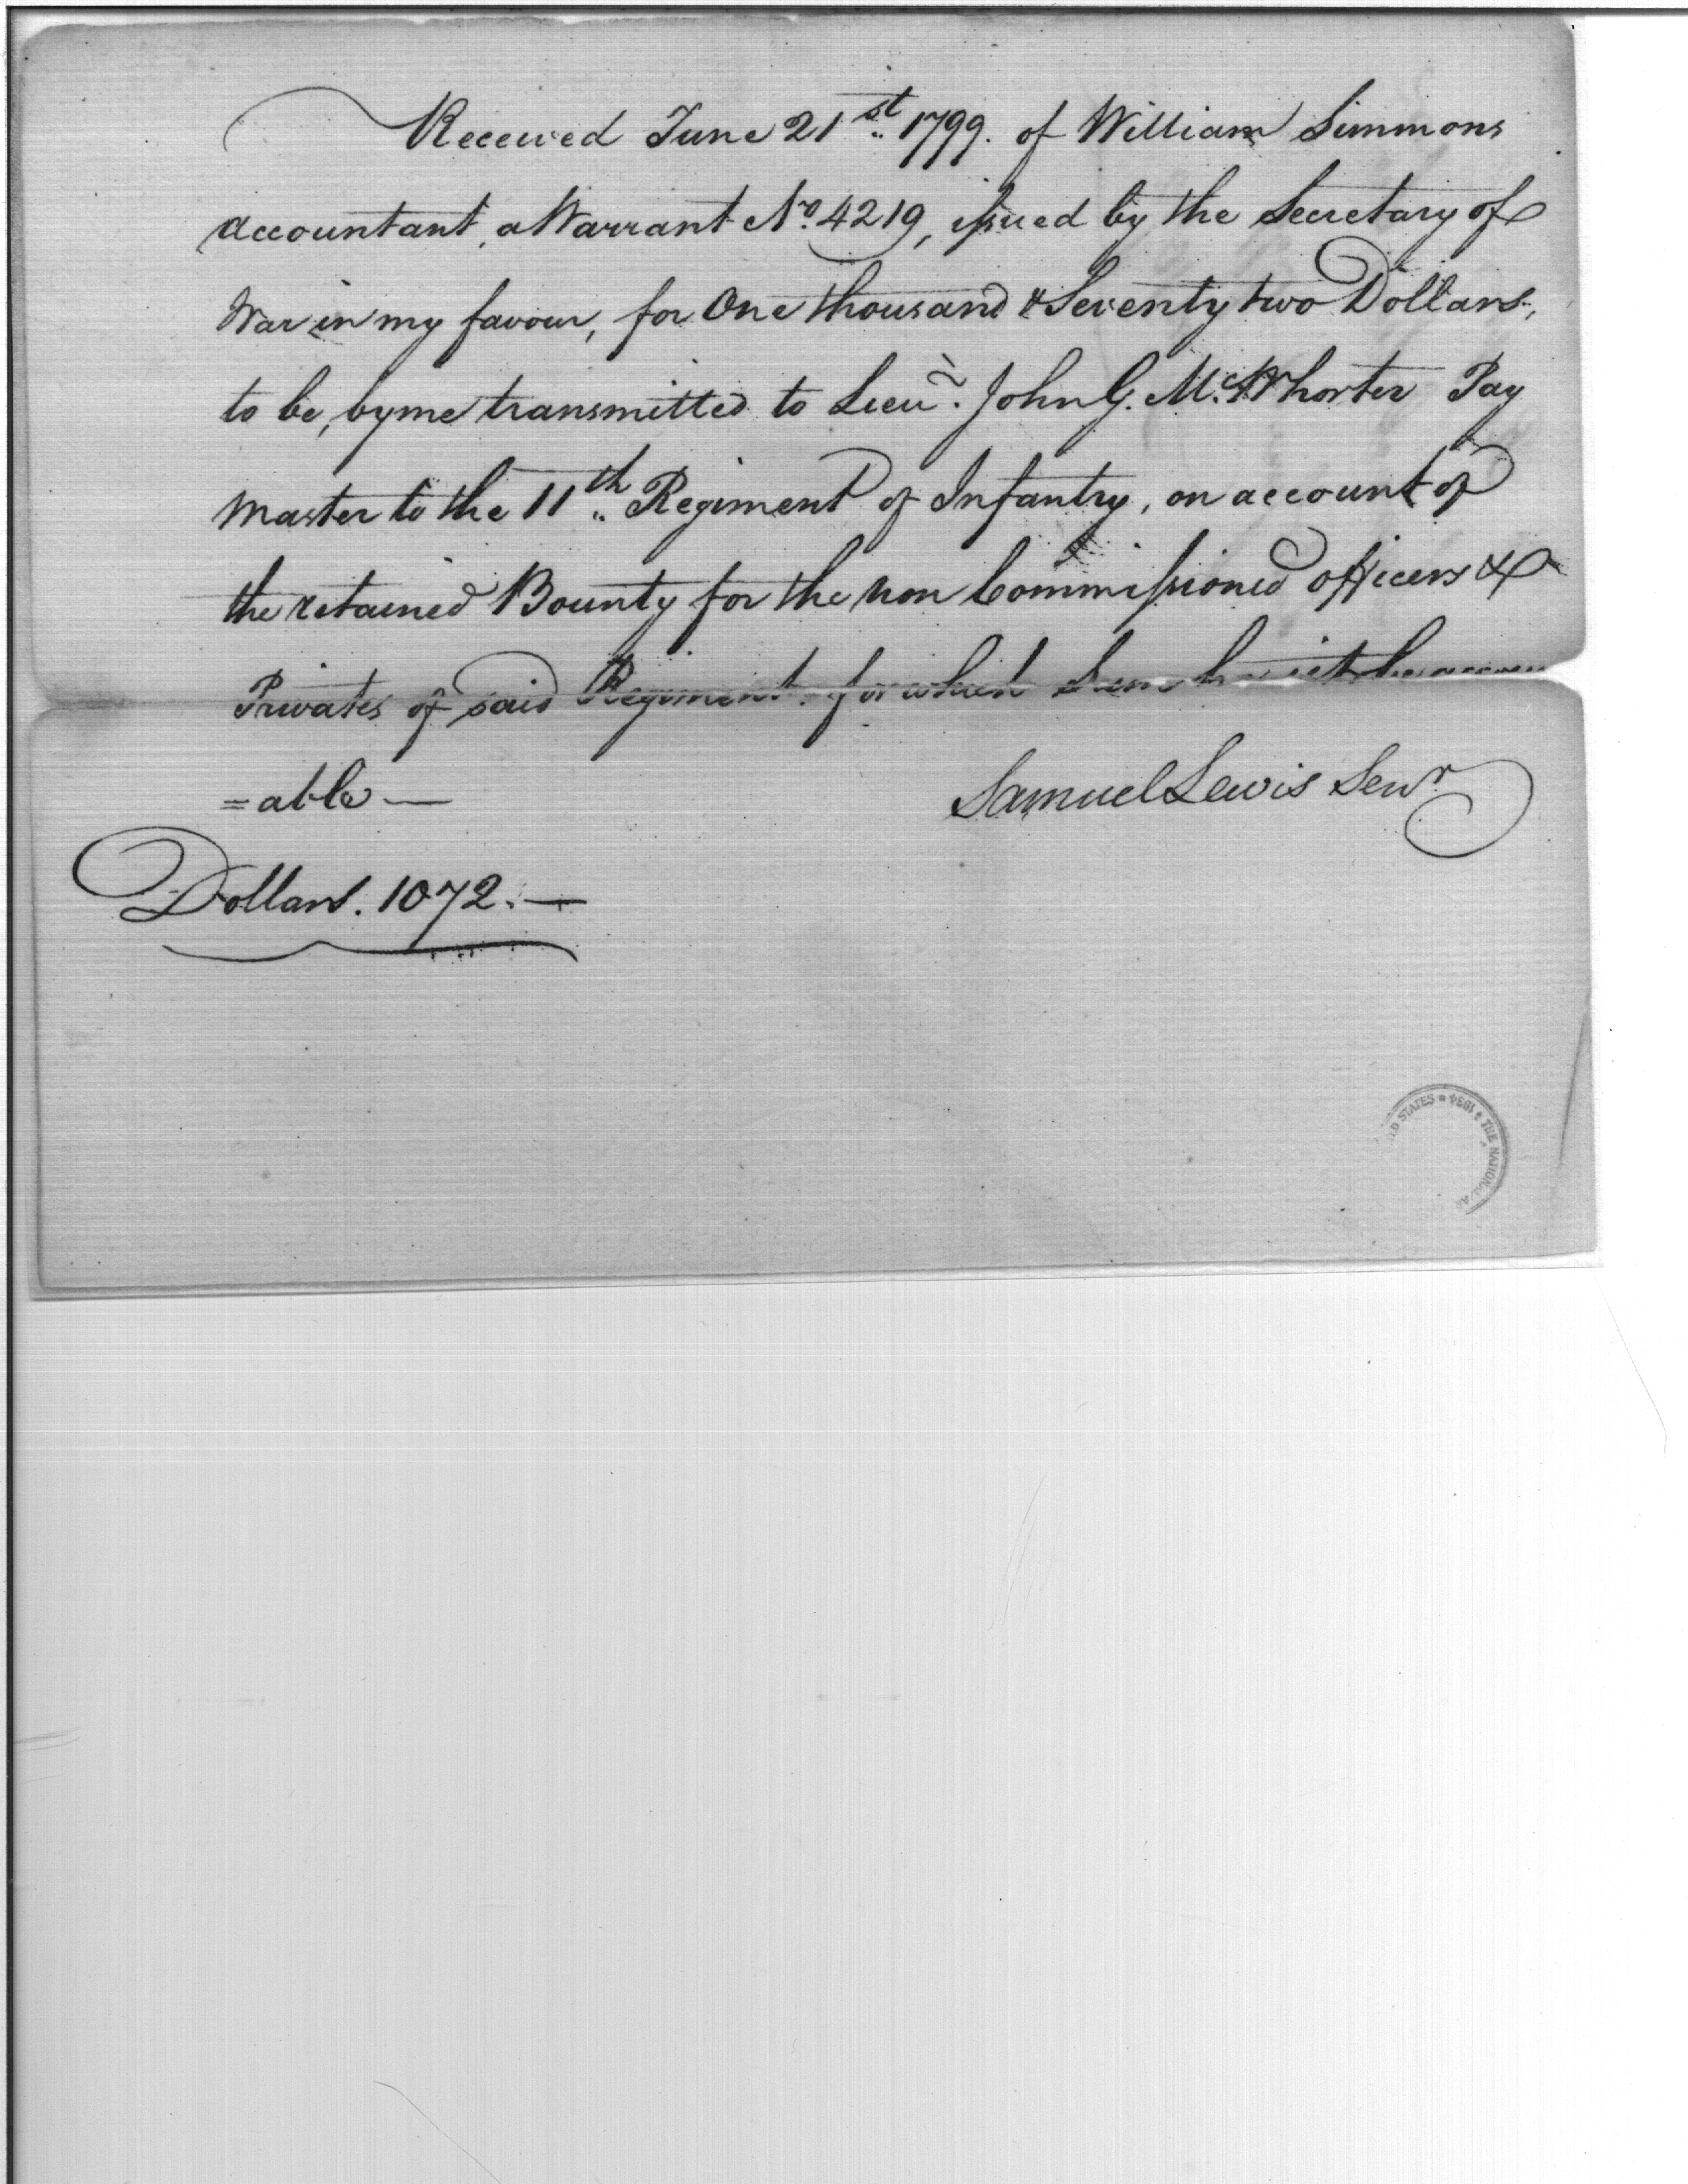 Received June 21st. 1799. of William Simmons
accountant, a Warrant No. 4219, issued by the Secretary of
War in my favour, for One thousand & Seventy two Dollars,
to be, by me transmitted to Lieut. John G. McWhorter Pay
master to the 11th. Regiment of Infantry, on account of
the retained Bounty for the non Commissioned officers &
Privates of said Regiment. for which I am
=able —
Samuel Lewis Senr.
Dollars. 1072. —
ED STATES * 1934 * THE NATIONAL A